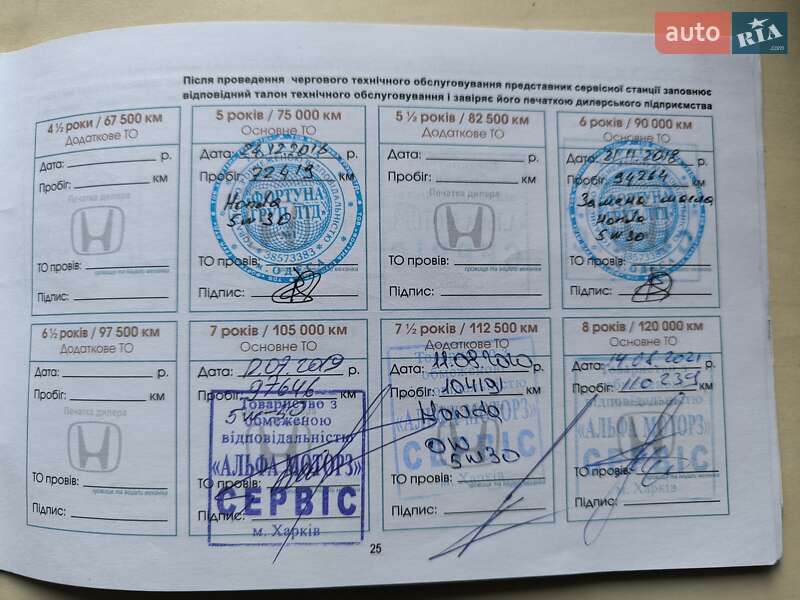 auto RIA .com
Після проведення чергового технічного обслуговування представник сервісної станції заповнює
відповідний талон технічного обслуговування і завіряє його печаткою дилерського підприємства
4 ½ роки / 67 500 км
Додаткове ТО
Дата: р.
Пробіг: км
Печатка дилера
ТО провів:
прізвище та ініціали механіка
Підпис:
5 років / 75 000 км
Основне ТО
Дата: р.
Пробіг: 72419 км
Honda
5w30
38573383
ОДЕСА
ТО провів:
Підпис:
5 ½ років / 82 500 км
Додаткове ТО
Дата: р.
Пробіг: км
Печатка дилера
ТО провів:
прізвище та ініціали механіка
Підпис:
6 років / 90 000 км
Основне ТО
Дата: 21.11.2018 р.
Пробіг: 94264 км
Замена масла
Honda
5w30
ТО провів:
Підпис:
6 ½ років / 97 500 км
Додаткове ТО
Дата: р.
Пробіг: км
Печатка дилера
ТО провів:
прізвище та ініціали механіка
Підпис:
7 років / 105 000 км
Основне ТО
Дата: р.
Пробіг: 97646 км
5w-30
Товариство з
обмеженою
відповідальністю
«АЛЬФА МОТОРЗ»
ТО провів:
СЕРВІС
Підпис:
м. Харків
7 ½ років / 112 500 км
Додаткове ТО
Дата: 11.08.2020 р.
Пробіг: 104191 км
Honda
OW
5w30
«АЛЬФА МОТОРЗ»
СЕРВІС
м. Харків
ТО провів:
Підпис:
8 років / 120 000 км
Основне ТО
Дата: р.
Пробіг: 110239 км
відповідальністю
«АЛЬФА МОТОРЗ»
СЕРВІС
ТО провів:
м. Харків
Підпис:
25